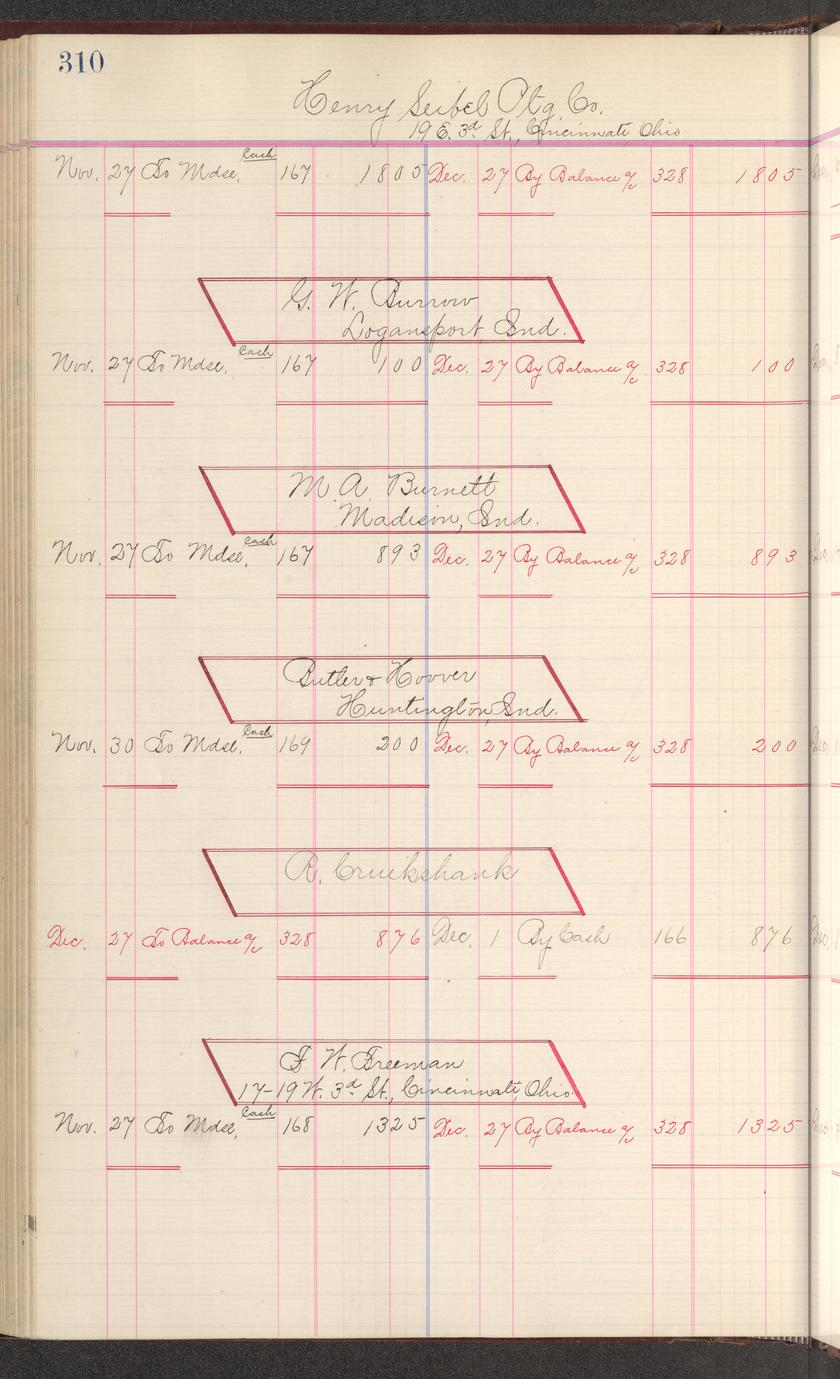 310
Henry Seibel Ptg. Co.
19 E. 3d St., Cincinnati, Ohio.
Nov. 27 To Mdse, Cash 167 1805 Dec. 27 By Balance a/c 328 1805
G. W. Burrow
Logansport, Ind.
Nov. 27 To Mdse, Cash 167 100 Dec. 27 By Balance a/c 328 100
M. A. Burnett
Madison, Ind.
Nov. 27 To Mdse, Cash 167 893 Dec. 27 By Balance a/c 328 893
Butler & Hoover
Huntington, Ind.
Nov. 30 To Mdse. Cash 169 200 Dec. 27 By Balance a/c 328 200
R. Cruikshank
Dec. 27 To Balance a/c 328 876 Dec. 1 By Cash 166 876
F. W. Freeman
17-19 W. 3d St., Cincinnati, Ohio
Nov. 27 To Mdse, Cash 168 1325 Dec. 27 By Balance a/c 328 1325